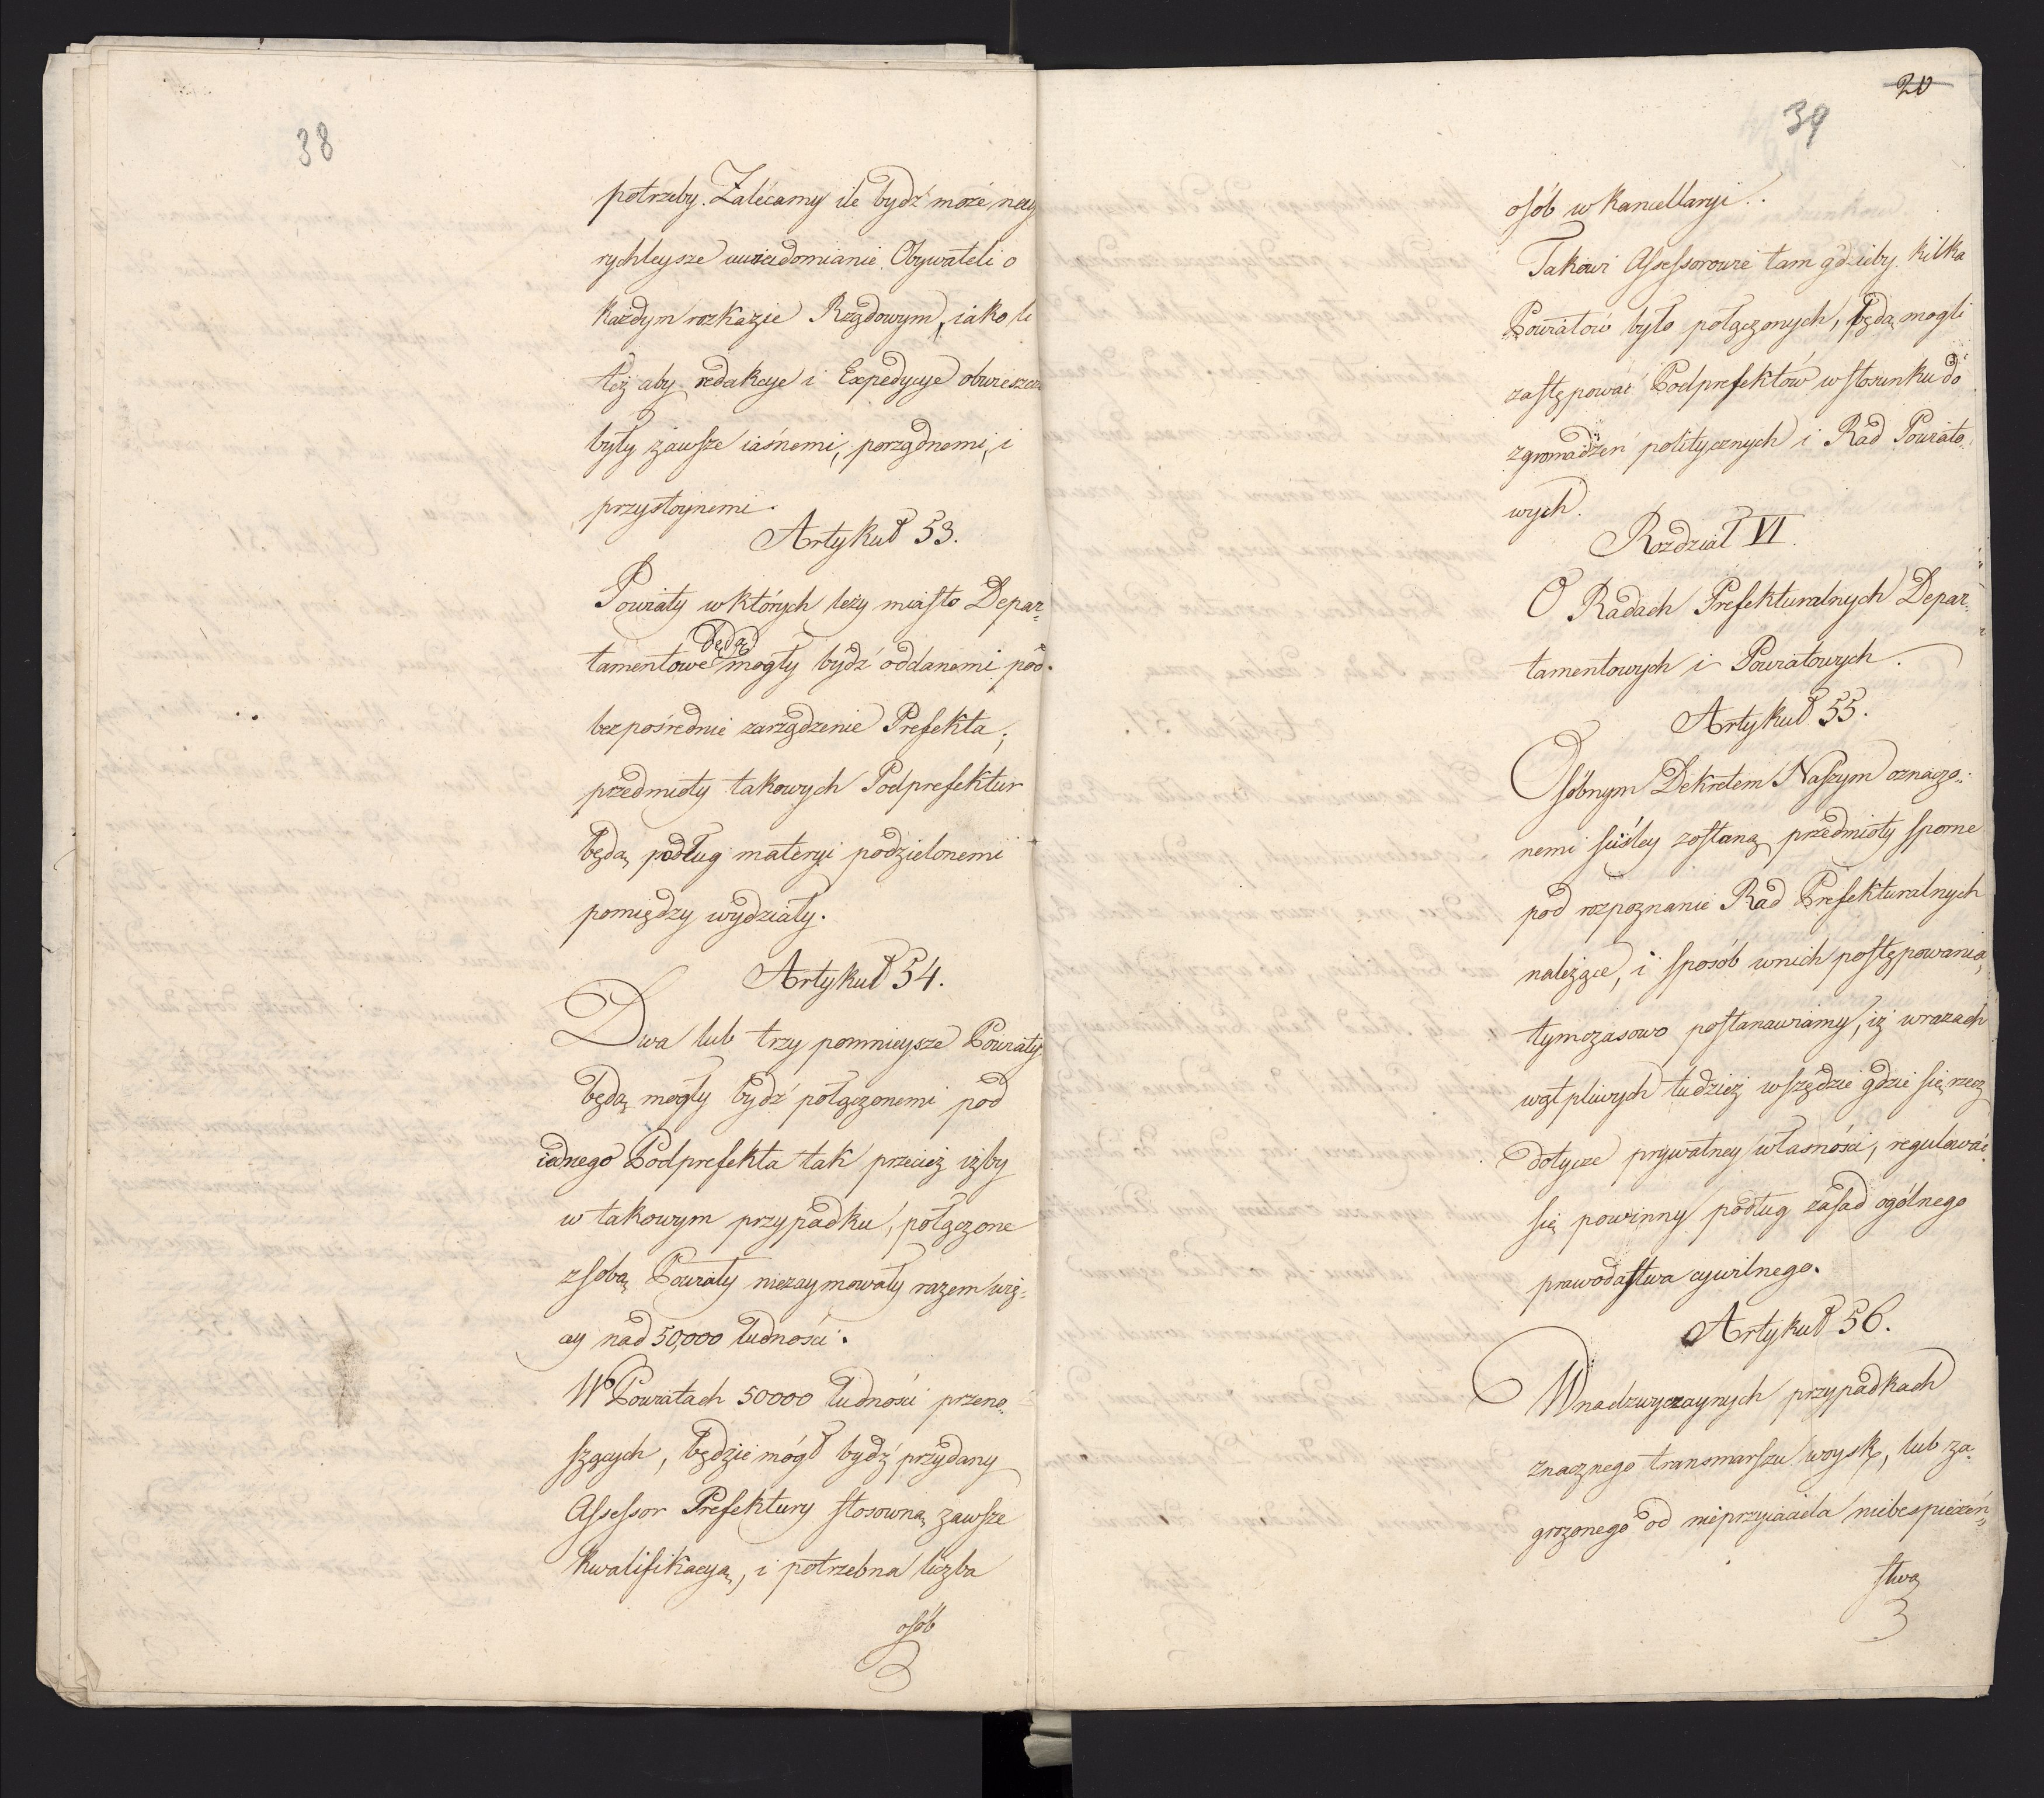 38
potrzeby. Zalécamy ile bydź może nay
rychleysze uwiadomianie Obywateli o
każdym rozkazie Rządowym, iako li
téż aby redakcye i Expedycye obwieszcz
były zawsze iaśnemi, porządnemi, i
przystoynemi.
Artykuł 53.
Powiaty w których leży miasto Depar=
będą
tamentowe mogły bydź oddanemi pod
bezpośrednie zarządzenie Prefekta;
przedmioty takowych Podprefektur
będą podług materyi podzielonemi
pomiędzy wydziały.
Artykuł 54.
Dwa lub trzy pomnieysze Powiaty
będą mogły bydź połączonemi pod
iednego Podprefekta tak przecież iżby
w takowym przypadku, połączone
z sobą Powiaty niezaymowały razem wię=
cy nad 50,000 ludności.
W Powiatach 50000 ludności przeno=
szących, będzie mógł bydź przydany
Assessor Prefektury stosowną zawsze
kwalifikacyą, i potrzebna liczba
osób
20
39
osób w kancellaryi.
Takowi Assessorowie tam gdzieby kilka
Powiatów było połączonych, będą mogli
zastępować Podprefektów w stosunku do
zgromadzeń politycznych i Rad Powiato
wych.
Rozdział VI.
O Radach Prefekturalnych Depar=
tamentowych i Powiatowych.
Artykuł 55.
Osóbnym Dekretem Naszym oznaczo=
nemi ściśley zostaną przedmioty sporne
pod rozpoznanie Rad Prefekturalnych
należące, i sposób w nich postępowania,
tymczasowo postanawiamy, iż w razach
wątpliwych tudzież wszędzie gdzie się rzecz
dotycze prywatney własności, regulować
się powinny podług zasad ogólnego
prawodastwa cywilnego.
Artykuł 56.
W nadzwyczaynych przypadkach
znacznego transmarszu woysk, lub za=
grożonego od nieprzyiaciela niebespieczeń=
stwa